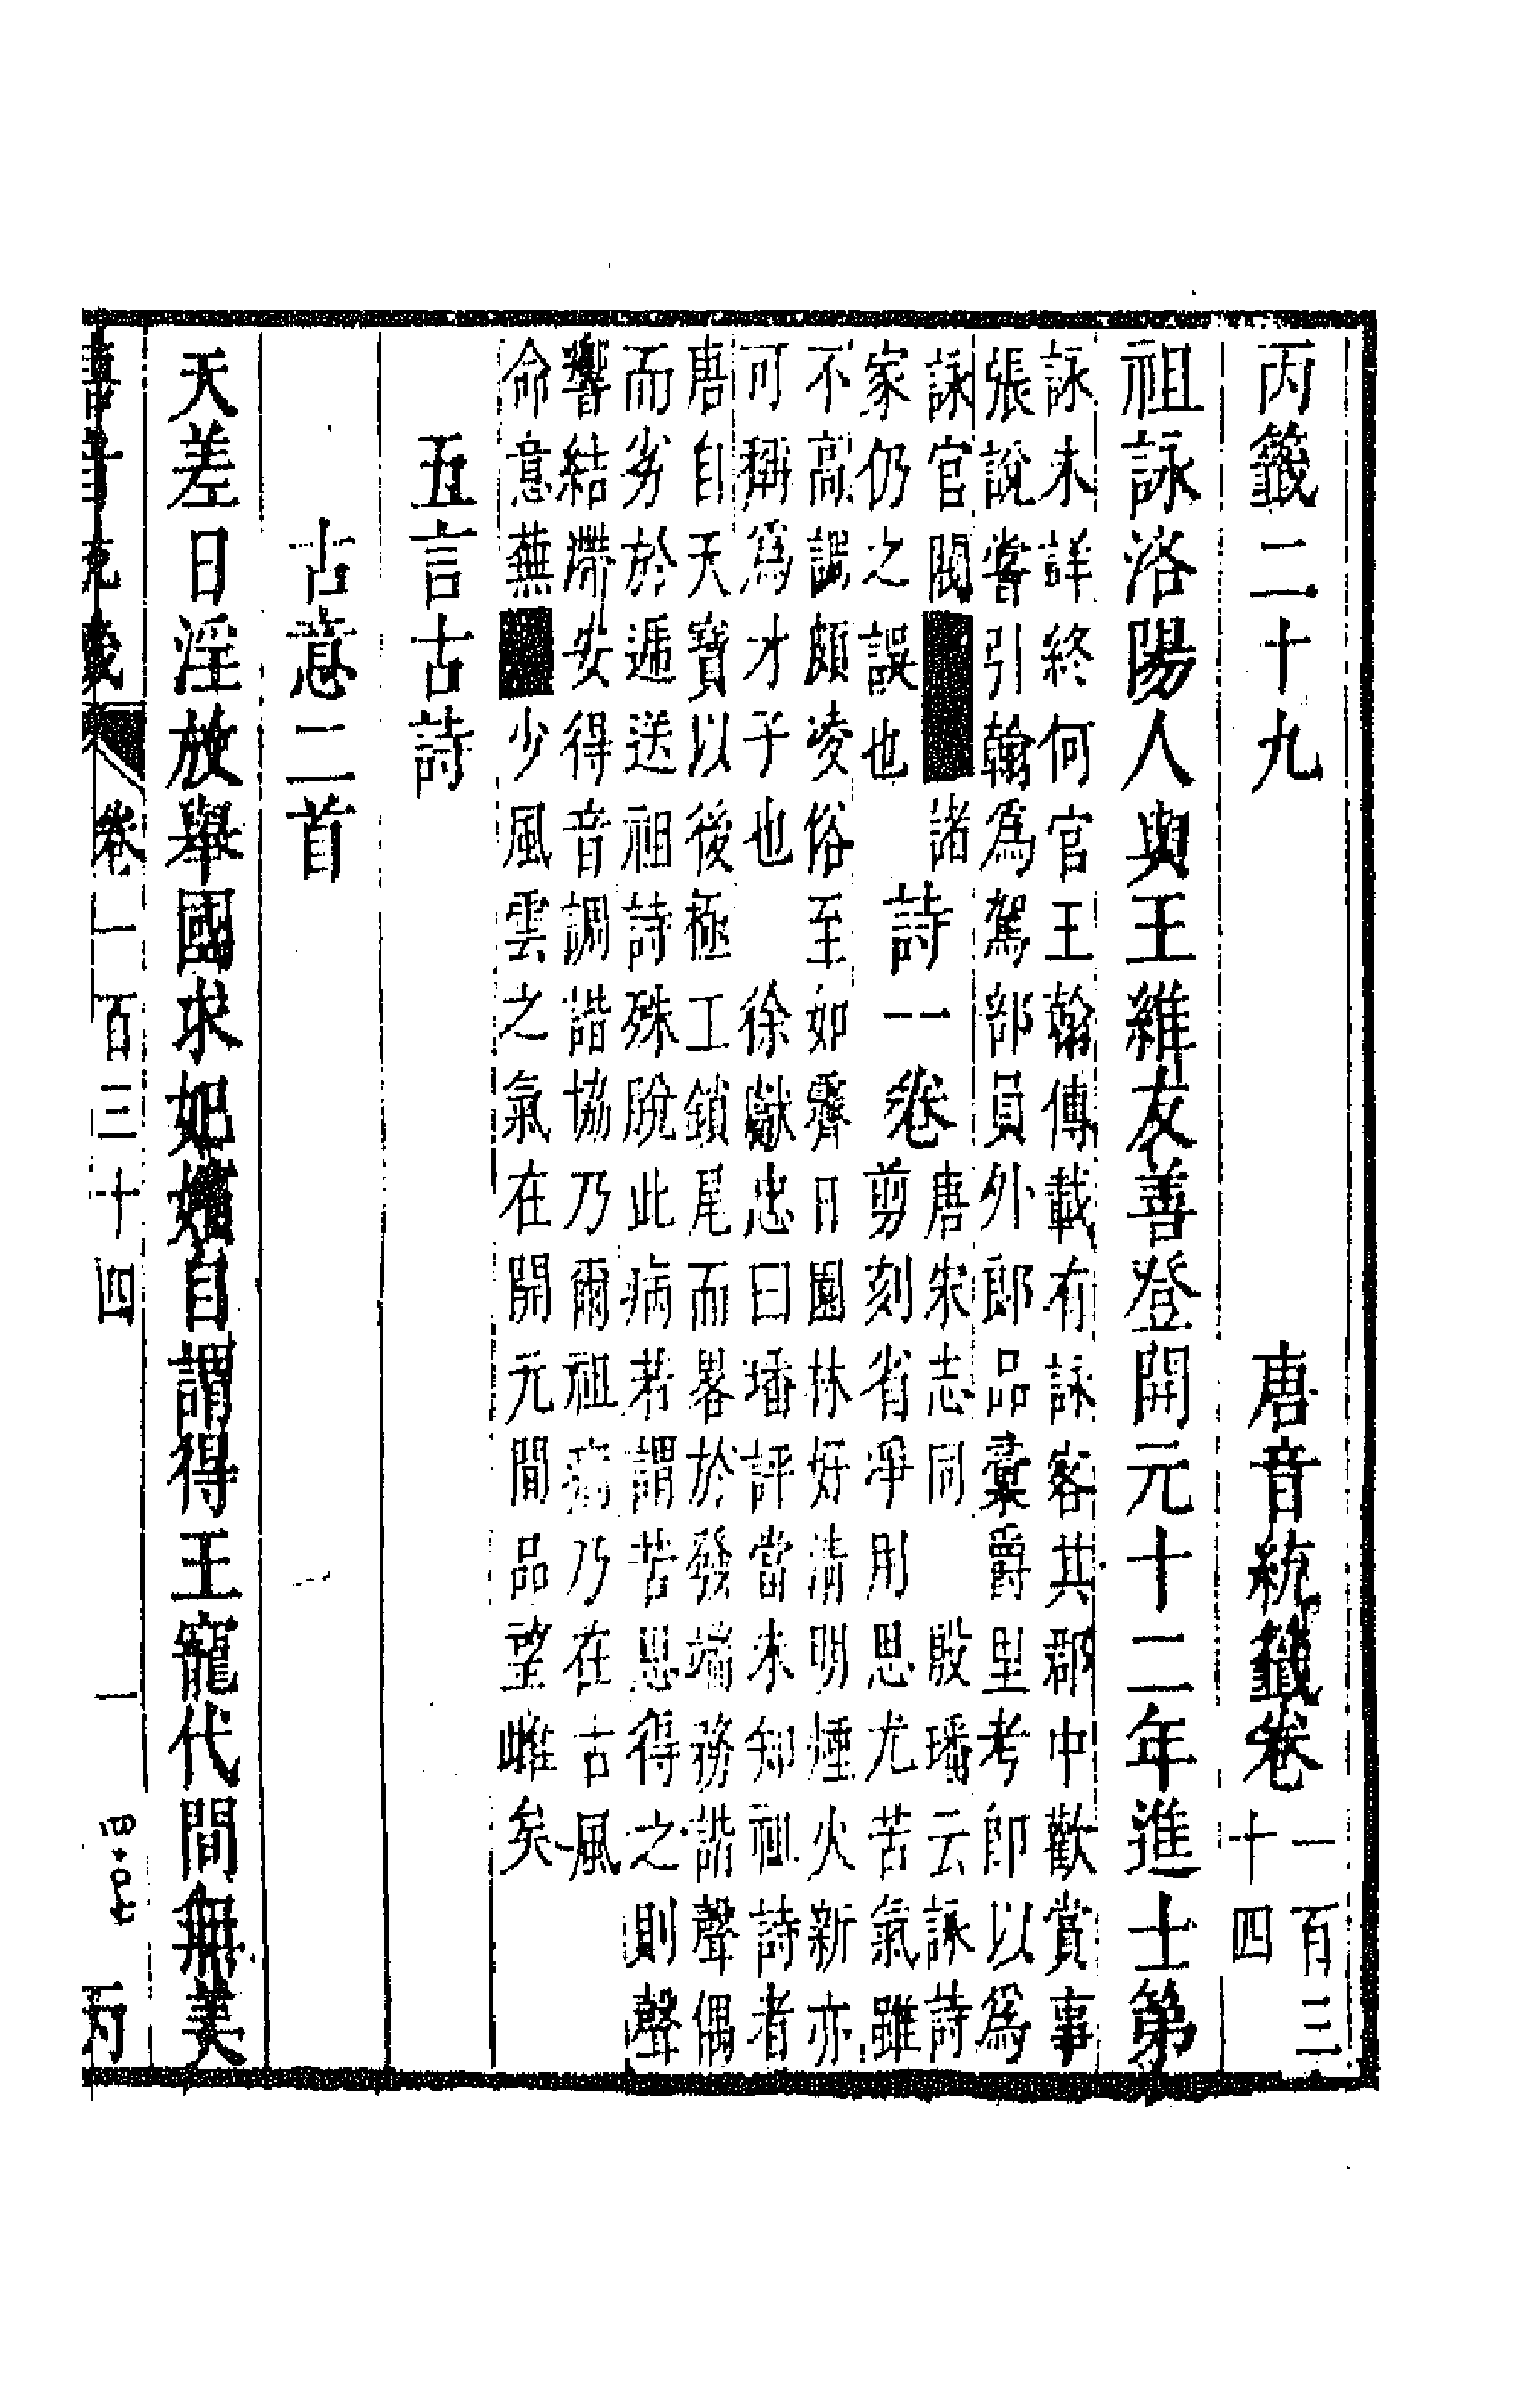 丙籤二十九　唐音統籤卷一百三十四
祖詠洛陽人與王維友善登開元十二年進士第
詠未詳終何官王翰傳載有詠客其郡中歡賞事
張說嘗引翰爲駕部員外郎品彙爵里考即以爲
詠官閥諸
家仍之誤也
詩一卷
唐宋志同　殷璠云詠詩
剪刻省淨用思尤苦氣雖
不高調頗凌俗至如霽日園林好清明煙火新亦
可稱爲才子也　徐獻忠曰璠評當未知祖詩者
唐自天寶以後極工鎖尾而畧於發端務諧聲偶
而劣於遞送祖詩殊脫此病若謂苦思得之則聲
響結滯安得音調諧協乃爾祖病乃在古風
命意蕪少風雲之氣在開元間品望雌矣
五言古詩
古意二首
夫差日淫放舉國求妃嬪自謂得王寵代間無美
卷一百三十四　一　丙